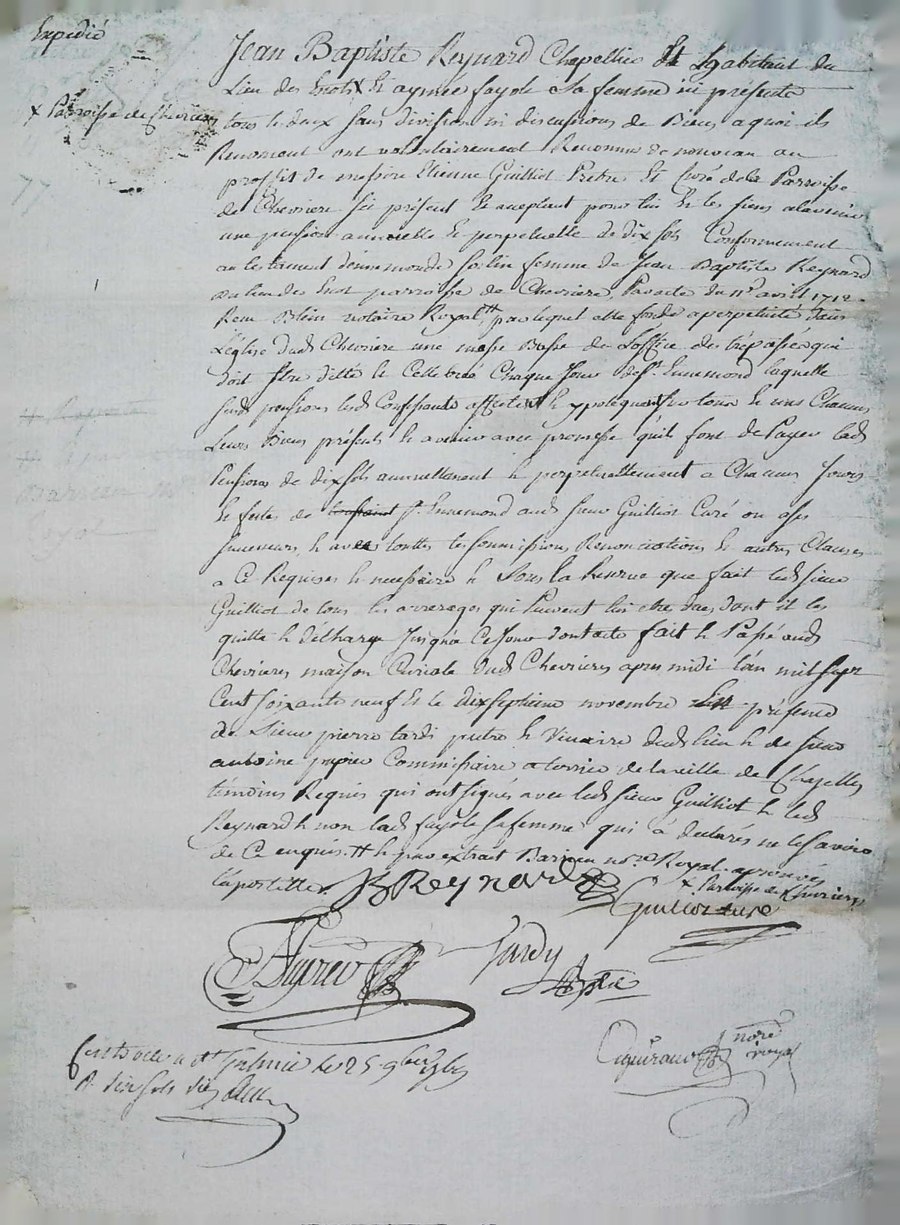 Expedié
Jean Baptiste Reynard Chapellier Et habitant du
Lieu des X Et aymée fayole Sa femme ici presente
x Parroisse de Chevrieres
tous le deux sans division ni discussions de Biens a quoi ils
Renoncent ont volontairement Reconnu de nouveau au
proffit de messire Etienne Guilliot Pretre Et Curé de la Parroisse
de Chevriere ici présent Et acceptant pour lui Et les siens alavenir
une pension annuelle Et perpetuelle de dix sols Conformement
au testament d'ennemonde femme de Jean Baptiste Reynard
du lieu de parroisse de Chevriere, Par acte du avril 1712.
Recu Blein notaire Royal tt par lequel elle fonde a perpetuité dans
L'église dud Chevriere une messe Basse de Loffice des trépassés qui
doit Etre ditte Et Cellebrée Chaque Jour de st. Ennemond laquelle
pensions led Confessants affectent Et ypotequent sur tous Et uns Chacuns
Leurs Biens présents Et avenir avec promesse quils font de Payer lad
Pensions de dix sols annuellement Et perpetuellement a Chacuns Jours
Et festes de st. Ennemond aud sieur Guilliot Curé ou a ses
successeurs Et avec touttes les soummissions Renonciations Et autres Clauses
a Ce Requises Et necessaire Et Sous la Reserve que fait led sieur
Guilliot de tous les arrerages qui Peuvent lui etre dues dont il les
quitte Et décharge Jusqua Ce Jour dont acte fait Et Passé aud
Chevrieres maison Curiale dud Chevrieres apres midi l'an mil sept
Cent soixante neuf Et le dixseptieme novembre En présence
de Sieur pierre tardi pretre Et Vicaire dud lieu Et de sieur
antoine Commissaire a terrier de la ville de Chazelles
témoins Requis qui ont signés avec led sieur Guilliot Et led
Reynard Et non lad fayole sa femme qui a declarés ne le savoir
de Ce enquis. tt Et par extrait Barjeu nore. Royal. aprouvé
lapostille. JB Reynard x. Parroisse de Chevrieres
Guilliot curé
Tardy
ptre
nore royal
Controllé a St Galmier le 25 9bre 1769
R dix sols six